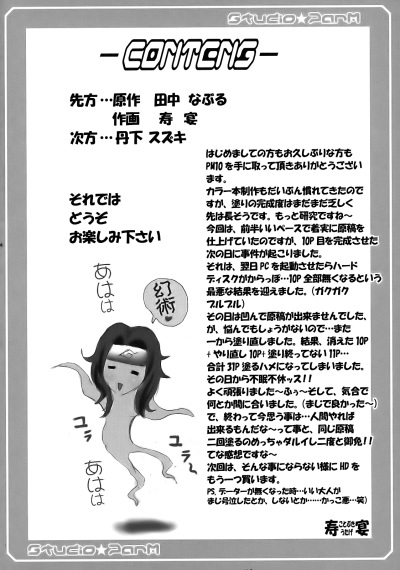 Studio★PanM
-CONTENS-
先方…原作 田中 なぶる
作画 寿 宴
次方…丹下 スズキ
それでは
どうぞ
お楽しみ下さい
はじめましての方もお久しぶりな方も
PM10を手に取って頂きありがとうござい
ます。
カラー本制作もだいぶん慣れてきたので
すが、塗りの完成度はまだまだ乏しく
先は長そうです。もっと研究ですね～
今回は、前半いいペースで着実に原稿を
仕上げていたのですが、10P目を完成させた
次の日に事件が起こりました。
それは、翌日PCを起動させたらハード
ディスクがからっぽ…10P全部無くなるという
最悪な結果を迎えました。(ガクガク
ブルブル)
その日は凹んで原稿が出来ませんでした
が、悩んでもしょうがないので…また
一から塗り直しました。結果、消えた10P
+やり直し10P+塗り終ってない11P…
合計31P塗るハメになってしまいました。
その日から不眠不休ッス!!
よく頑張りました～ふぅ～そして、気合で
何とか間に合いました。(まじで良かった～)
で、終わって今思う事は…人間やれば
出来るもんだな～って事と、同じ原稿
二回塗るのめっちゃダルイし二度と御免!!
てな感想ですな～
次回は、そんな事にならない様にHDを
もう一つ買います。
PS,データーが無くなった時…いい大人が
まじ号泣したとか、しないとか……かっこ悪…笑)
寿 宴
ことぶき うたげ
あはは
幻術
ユラ
ユラ～
あはは
Studio★PanM